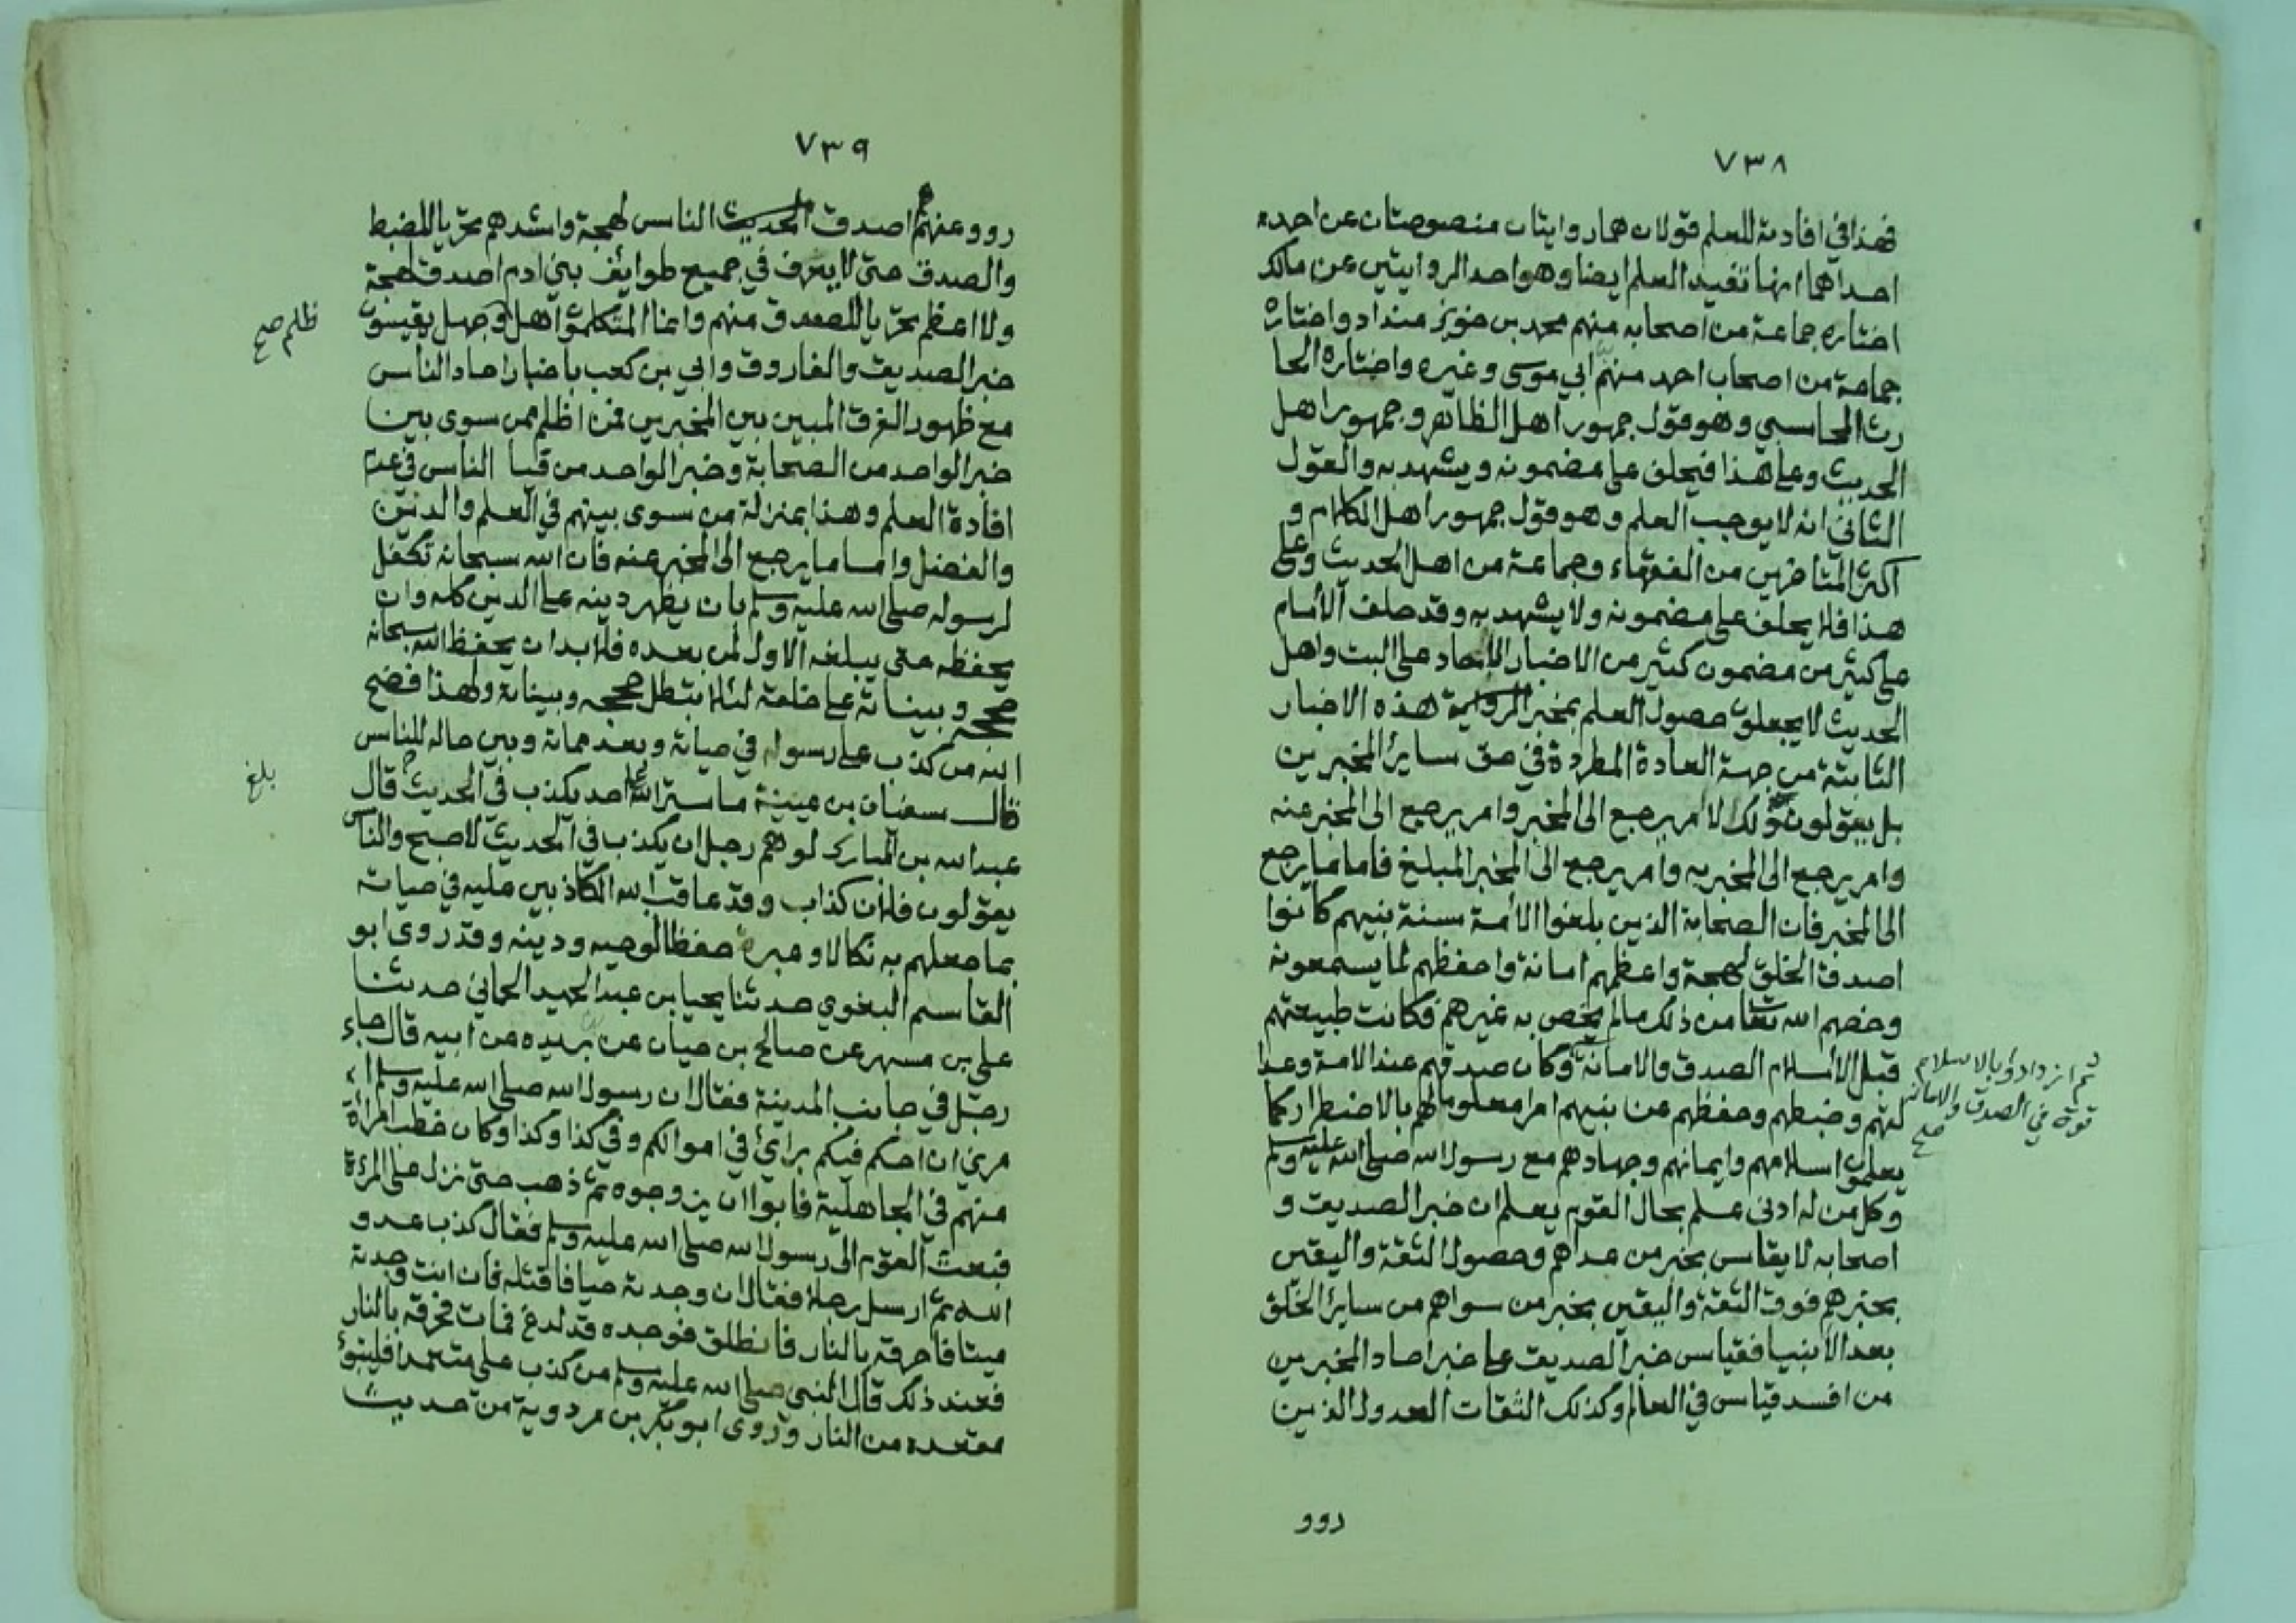 ٧٣٨
فهذا في افادته للعلم قولان هما روايتان منصوصتان عن احمد
احداهما انها تفيد العلم ايضا وهو احد الروايتين عن مالك
اختاره جماعة من اصحابه منهم محمد بن خويز منداد واختاره
جماعة من اصحاب احمد منهم ابي موسى وغيره واختاره الحا
رث المحاسبي وهو قول جمهور اهل الظاهر وجمهور اهل
الحديث وعلى هذا فيحلف على مضمونه ويشهد به والقول
الثاني انه لا يوجب العلم وهو قول جمهور اهل الكلام و
اكثر المتاخرين من الفقهاء وجماعة من اهل الحديث وعلى
هذا فلا يحلف على مضمونه ولا يشهد به وقد حلف الامام
على كثير من مضمون كثير من الاخبار الاحاد على البت واهل
الحديث لا يجعلون حصول العلم بمخبر هذه الاخبار
الثابتة من جهة العادة المطردة في حق ساير المخبرين
بل يقولون ذلك لامر يرجع الى المخبر وامر يرجع الى المخبر عنه
وامر يرجع الى المخبر به وامر يرجع الى المخبر المبلغ فاما ما يرجع
الى المخبر فان الصحابة الذين بلغوا الامة سنة نبيهم كانوا
اصدق الخلق لهجة واعظمهم امانة واحفظهم لما يسمعونه
وخصهم الله تعا من ذلك مالم يخص به غيرهم فكانت طبيعتهم
قبل الاسلام الصدق والامانة وكان صدقهم عند الامة وعدا
لتهم وضبطهم وحفظهم عن نبيهم امرا معلوما لهم بالاضطرار كما
يعلمون اسلامهم وايمانهم وجهادهم مع رسول الله صلى الله عليه وسلم
وكل من له ادنى علم بحال القوم يعلم ان خبر الصديق و
اصحابه لا يقاس بخبر من عداهم وحصول الثقة واليقين
بخبرهم فوق الثقة واليقين بخبر من سواهم من ساير الخلق
بعد الانبيا فقياس خبر الصديق على خبر احاد المخبرين
من افسد قياس في العالم وكذلك الثقات العدول الذين
ثم ازدادوا بالاسلام
قوة في الصدق والامانة
صح
روو
٧٣٩
روو عنهم هم اصدق الناس لهجة واشدهم تحريا للضبط
والصدق حتى لا يعرف في جميع طوايف بني ادم اصدق لهجة
ولا اعظم تحريا للصدق منهم وانما المتكلموا اهل وجهل يقيسون
خبر الصديق والفاروق وابي بن كعب باخبار احاد الناس
مع ظهور الفرق المبين بين المخبرين فمن اظلم ممن سوى بين
خبر الواحد من الصحابة وخبر الواحد من الناس في عدم
افادة العلم وهذا بمنزلة من سوى بينهم في العلم والدين
والفضل واما ما يرجع الى المخبر عنه فان الله سبحانه تكفل
لرسوله صلى الله عليه وسلم بان يظهر دينه على الدين كله وان
يحفظه حتى يبلغه الاول لمن بعده فلا بد ان يحفظ الله سبحانه
حججه وبيناته على خلقه لئلا تبطل حججه وبيناته ولهذا فضح
الله من كذب على رسوله في حياته وبعد مماته وبين حاله للناس
قال سفيان بن عيينة ما ستر الله على احد يكذب في الحديث قال
عبد الله بن المبارك لو هم رجل ان يكذب في الحديث لاصبح والناس
يقولون فلان كذاب وقد عاقب الله الكاذبين عليه في حياته
بما جعلهم به نكالا وعبرة حفظا لوحيه ودينه وقد روى ابو
القاسم البغوي حدثنا يحيا بن عبد الحميد الحماني حدثنا
علي بن مسهر عن صالح بن حيان عن بريده عن ابيه قال جاء
رجل في جانب المدينة فقال ان رسول الله صلى الله عليه وسلم ا
مرني ان احكم فيكم برايئ في اموالكم وفي كذا وكذا وكان خطب امراة
منهم في الجاهلية فابوا ان يزوجوه ثم ذهب حتى نزل على المرءة
فبعث القوم الى رسول الله صلى الله عليه وسلم فقال كذب عدو
الله ثم ارسل رجلا فقال ان وجدته حيا فاقتله فان انت وجدته
ميتا فاحرقه بالنار فانطلق فوجده قد لدغ فمات فحرقه بالنار
فعند ذلك قال النبي صلى الله عليه وسلم من كذب علي متعمدا فليتبوأ
مقعده من النار وروى ابو بكر بن مردوية من حديث
ظلم صح
بلغ